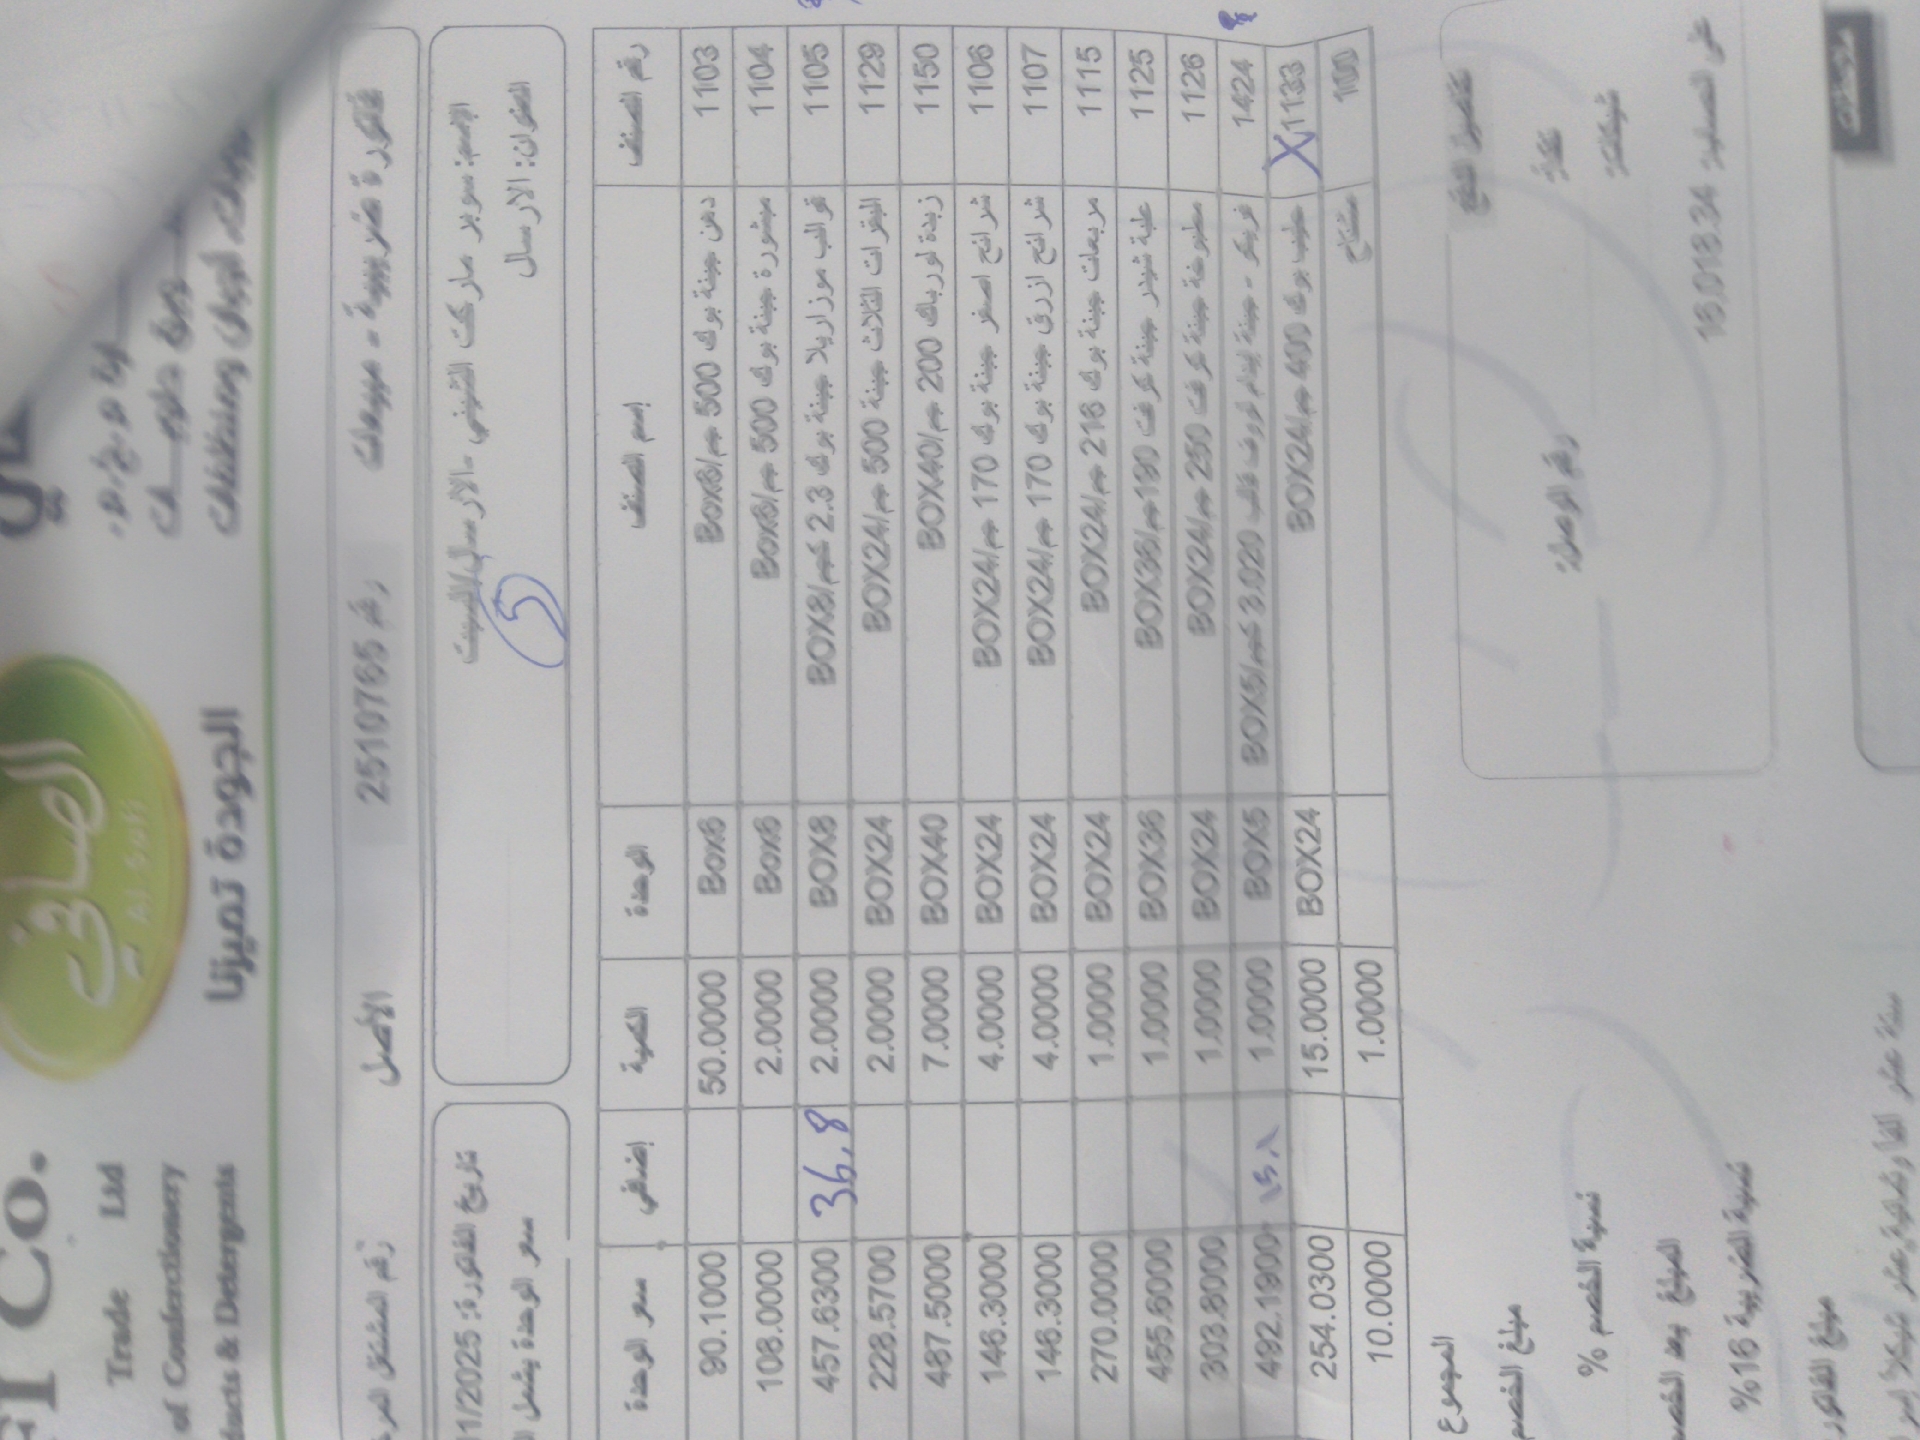 FI Co.
Trade Ltd
of Confectionery
ducts & Detergents
الصافي
Al Safi
الجودة تميزنا
فاتورة ضريبية - مبيعات
رقم 2510765
الأصل
رقم المشتغل المرخ
الإسم: سوبر ماركت الشيني -الارسال/البيت
العنوان: الارسال
5
تاريخ الفاتورة: 1/2025
سعر الوحدة يشمل ا
رقم الصنف إسم الصنف الوحدة الكمية إضافي سعر الوحدة
1103 دهن جبنة بوك 500 جم/Box6 Box6 50.0000 90.1000
1104 مبشورة جبنة بوك 500 جم/Box6 Box6 2.0000 108.0000
1105 قوالب موزاريلا جبنة بوك 2.3 كجم/BOX8 BOX8 2.0000 36.8 457.6300
1129 البقرات الثلاث جبنة 500 جم/BOX24 BOX24 2.0000 228.5700
1150 زبدة لورباك 200 جم/BOX40 BOX40 7.0000 487.5000
1106 شرائح اصفر جبنة بوك 170 جم/BOX24 BOX24 4.0000 146.3000
1107 شرائح ازرق جبنة بوك 170 جم/BOX24 BOX24 4.0000 146.3000
1115 مربعات جبنة بوك 216 جم/BOX24 BOX24 1.0000 270.0000
1125 علبة شيدر جبنة كرفت 190جم/BOX36 BOX36 1.0000 455.6000
1126 مطبوخة جبنة كرفت 250 جم/BOX24 BOX24 1.0000 303.8000
1424 فريكو - جبنة ايدام لووف قالب 3.020 كجم/BOX5 BOX5 1.0000 492.1900
X 1133 حليب بوك 400 جم/BOX24 BOX24 15.0000 254.0300
1100 مشتاح 1.0000 10.0000
المجموع
مبلغ الخصم
نسبة الخصم %
المبلغ بعد الخصم
نسبة الضريبة 16%
مبلغ الفاتور
تفصيل الدفع
نقدا:
شيكات:
رقم الوصل:
على الحساب: 16,018.34
ملاحظات